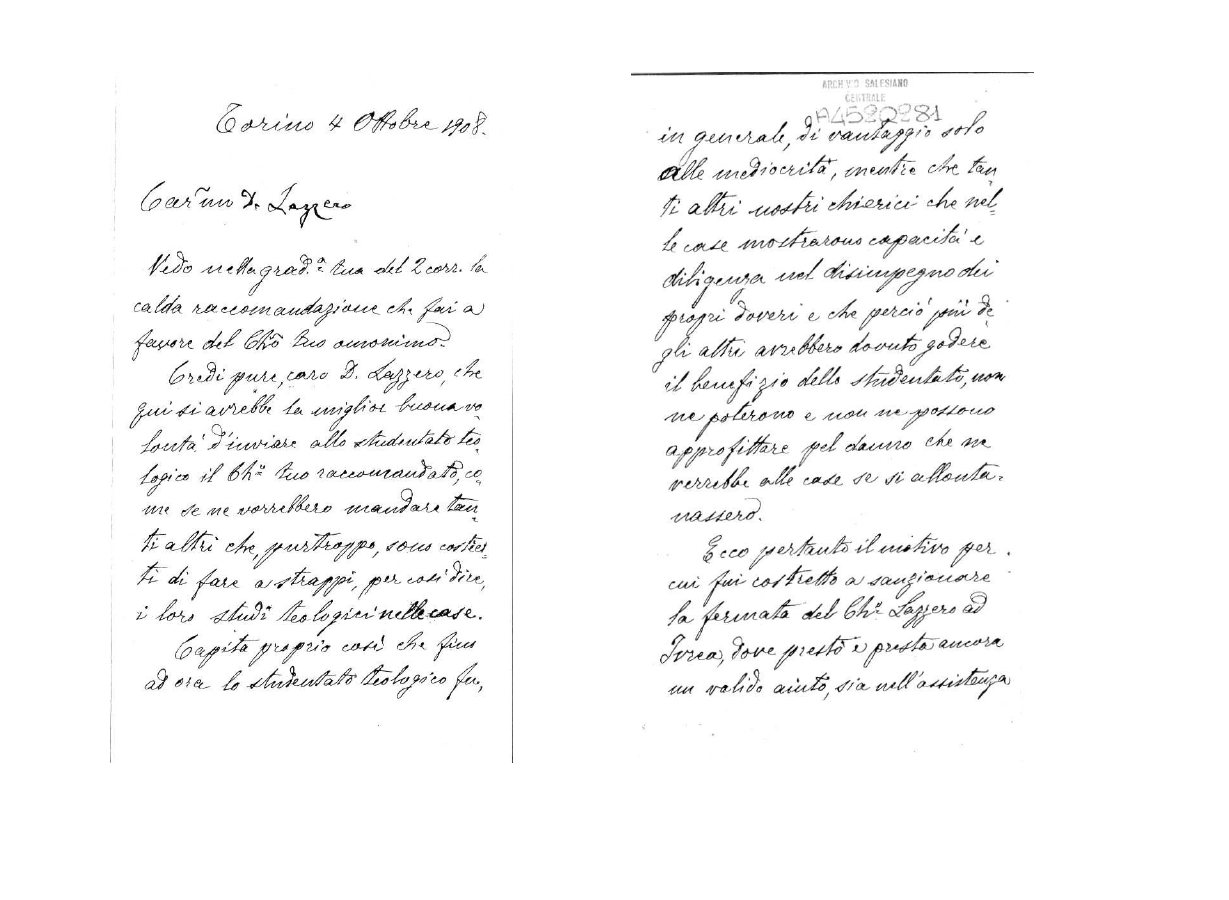 Torino 4 Ottobre 1908.
Car˜mo D. Lazzero
Vedo nella grad.ª tua del 2 corr. la
calda raccomandazione che fai a
favore del Ch.º tuo omonimo.
Credi pure, caro D. Lazzero, che
qui si avrebbe la miglior buona vo-
lontà d'inviare allo studentato teo-
logico il Ch.º tuo raccomandato, co-
me se ne vorrebbero mandare tan-
ti altri che, purtroppo, sono costret-
ti di fare a strappi, per così dire,
i loro studi teologici nelle case.
Capita proprio così che fino
ad ora lo studentato teologico fu,
ARCHIVIO SALESIANO
CENTRALE
A4520281
in generale, di vantaggio solo
alle mediocrità, mentre che tan-
ti altri nostri chierici che nel-
le case mostrarono capacità e
diligenza nel disimpegno dei
propri doveri e che perciò più de-
gli altri avrebbero dovuto godere
il benefizio dello studentato, non
ne poterono e non ne possono
approfittare pel danno che ne
verrebbe alle case se si allonta-
nassero.
Ecco pertanto il motivo per
cui fui costretto a sanzionare
la fermata del Ch.º Lazzero ad
Ivrea, dove prestò e presta ancora
un valido aiuto, sia nell'assistenza